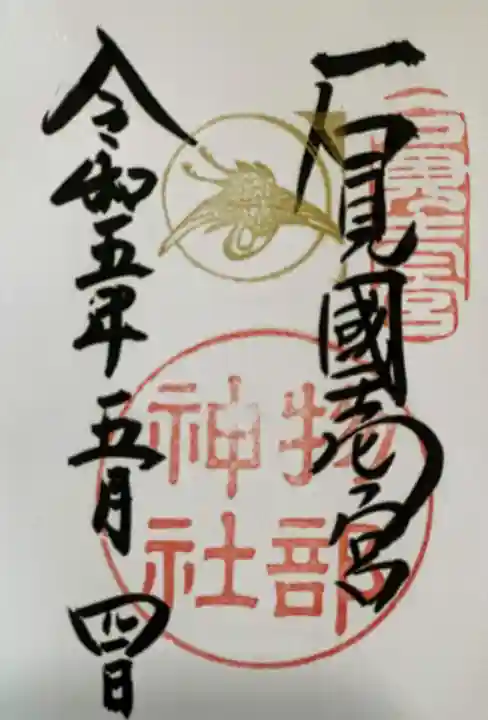 石見國壱の宮
物部
神社
令和五年五月四日